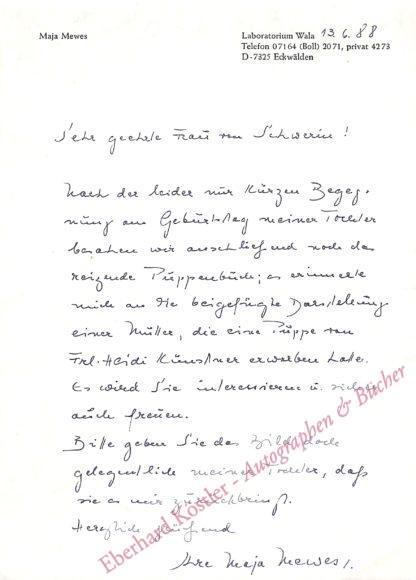 Maja Mewes
Laboratorium Wala 13.6.88
Telefon 07164 (Boll) 2071, privat 4273
D-7325 Eckwälden
Sehr geehrte Frau von Schwerin!
Nach der leider nur kurzen Begeg-
nung am Geburtstag meiner Tochter
besahen wir anschließend noch das
reizende Puppenbuch; es erinnerte
mich an die beigefügte Darstellung
einer Mutter, die eine Puppe von
Frl. Heidi Künstner erworben hatte.
Es wird Sie interessieren u. sicher
auch freuen.
Bitte geben Sie das Bild doch
gelegentlich meiner Tochter, daß
sie es mir zurückbringt.
Herzlich grüßend
Ihre Maja Mewes
Eberhard Köstler - Autographen & Bücher